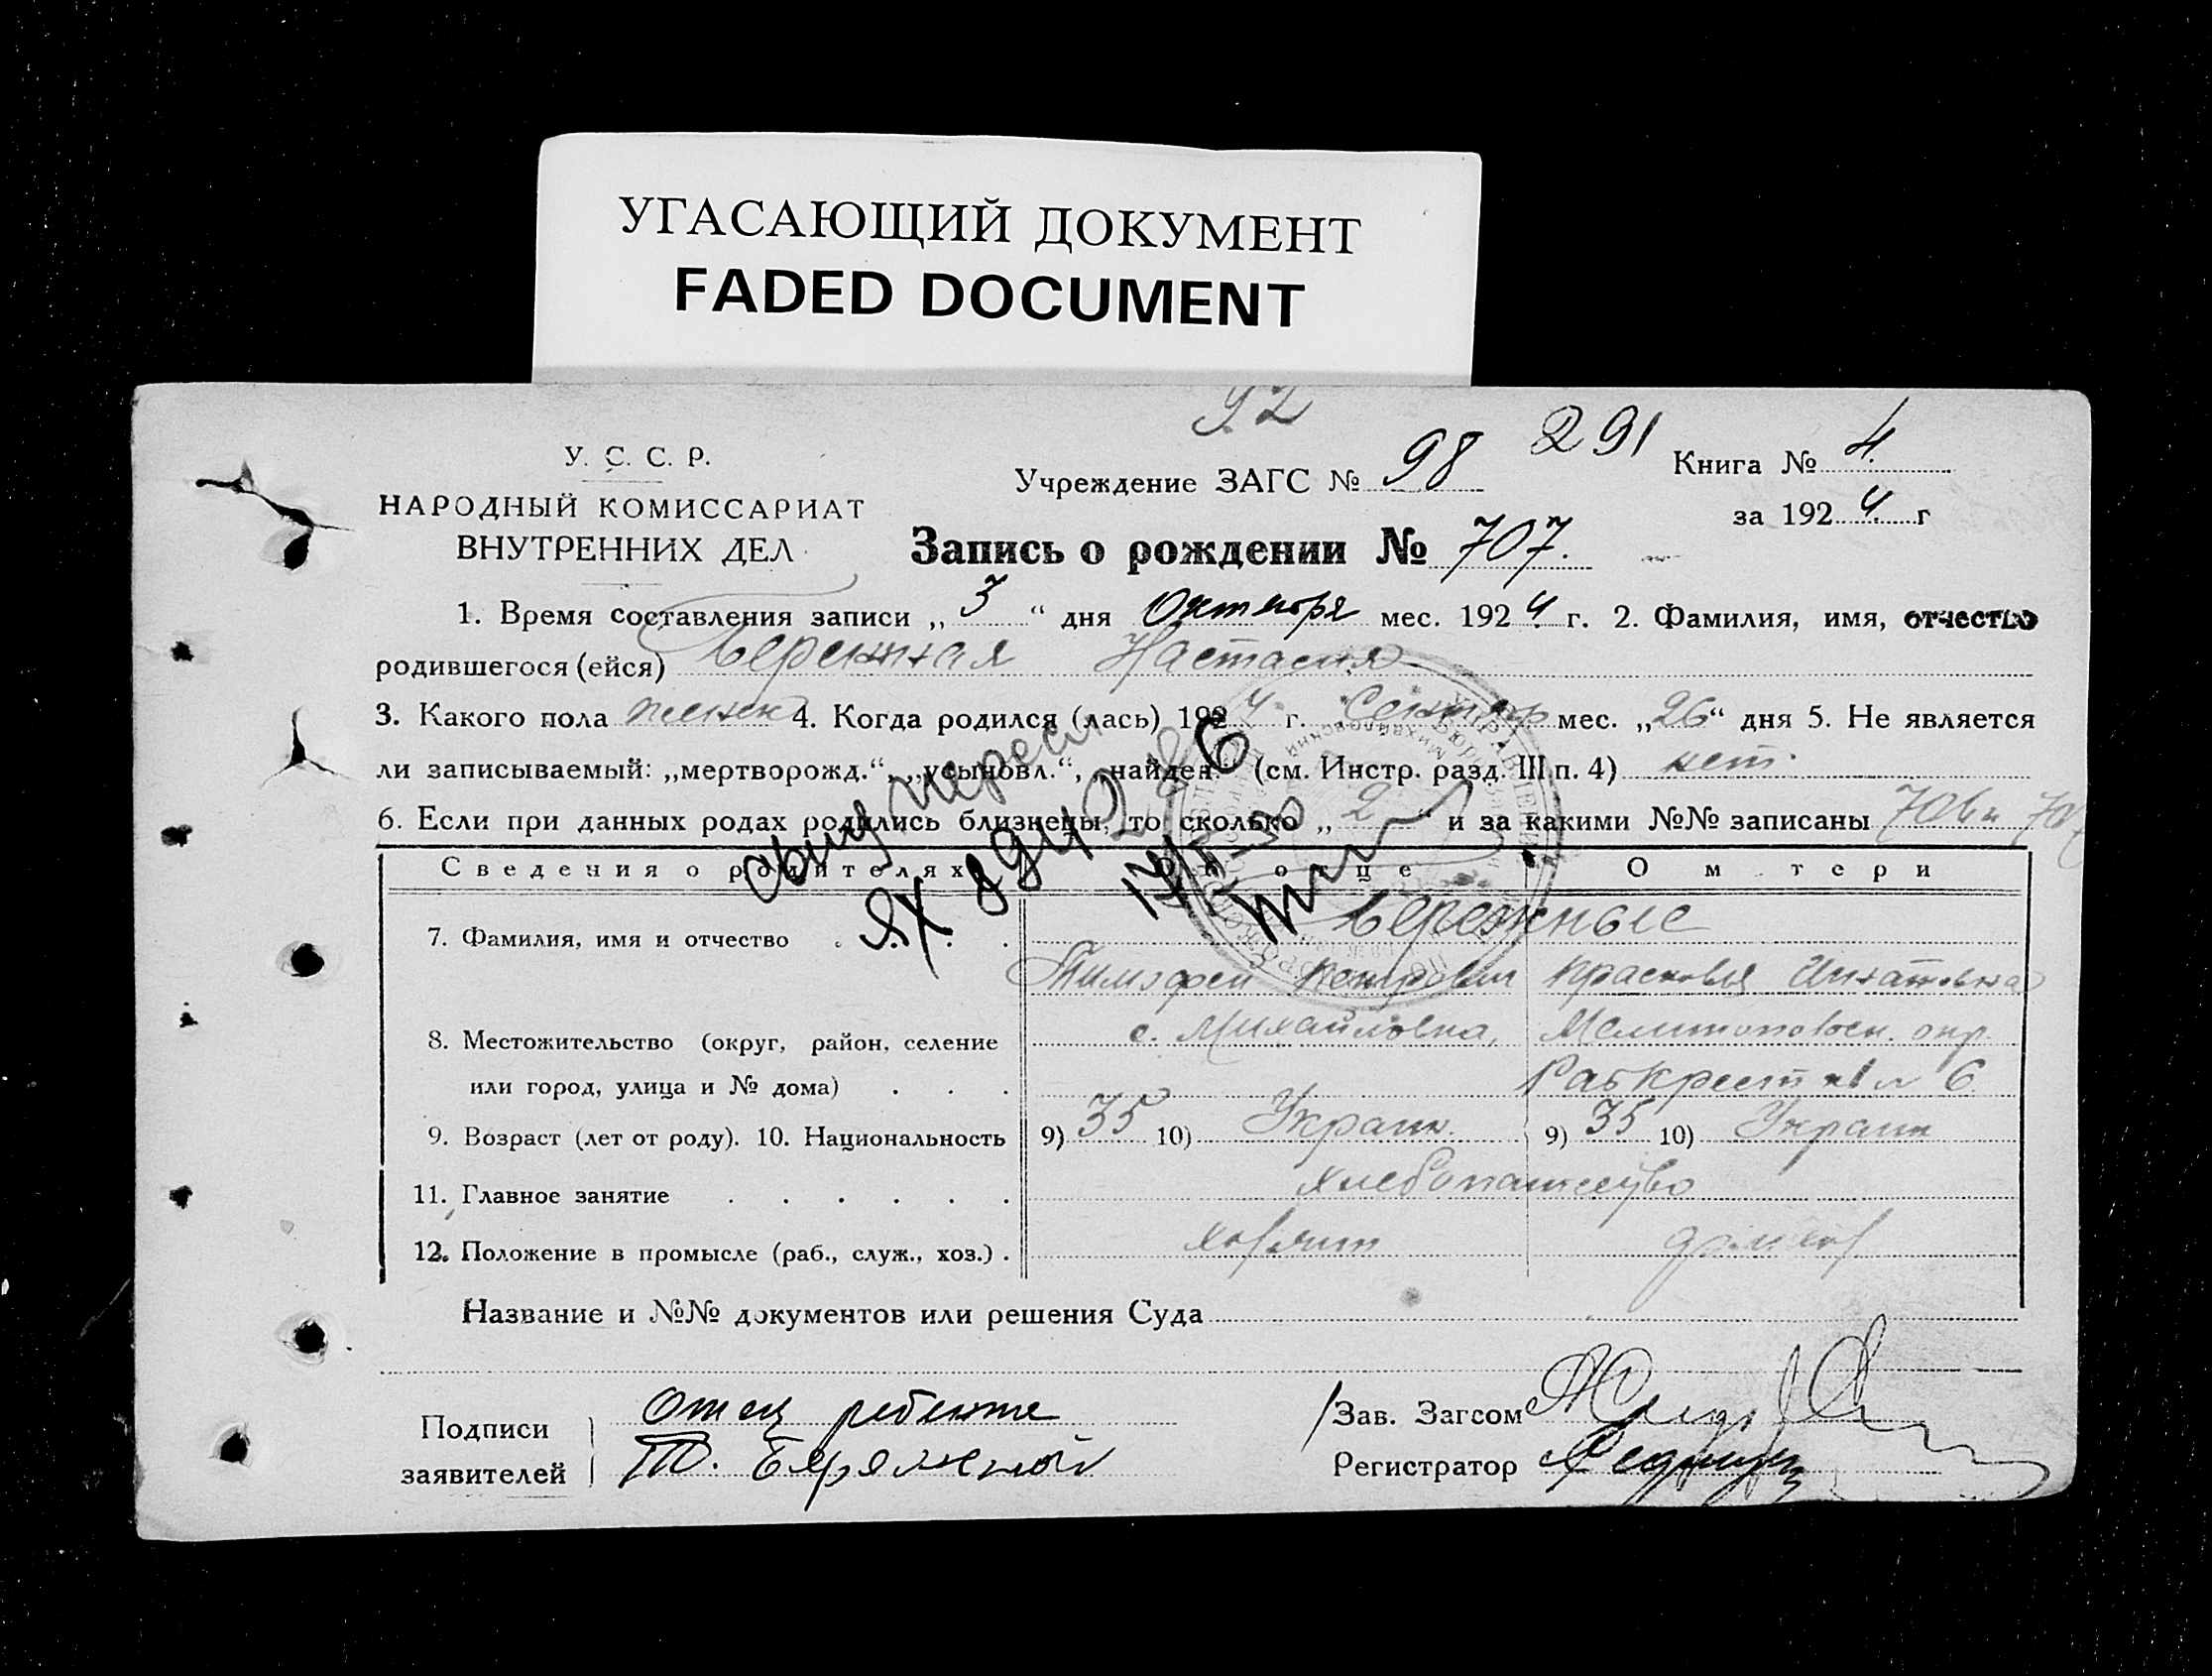 УГАСАЮЩИЙ ДОКУМЕНТ
FADED DOCUMENT
92
У. С. С. Р.
НАРОДНЫЙ КОМИССАРИАТ
ВНУТРЕННИХ ДЕЛ
Учреждение ЗАГС № 98 291 Книга № 4.
за 1924 г
Запись о рождении № 707.
1. Время составления записи „3“ дня Октября мес. 1924 г. 2. Фамилия, имя, отчество
родившегося (ейся) Бережная Настасия
3. Какого пола женск 4. Когда родился (лась) 1924 г. Сентябр мес. „26“ дня 5. Не является
ли записываемый: „мертворожд.“, „усыновл.“, „найден.“ (см. Инстр. разд. III п. 4) нет.
6. Если при данных родах родились близнецы, то сколько „2“ и за какими №№ записаны 706 и 707
Сведения о родителях О отце О м тери
7. Фамилия, имя и отчество Бережные
Тимофей Петрович Прасковья Игнатовна
8. Местожительство (округ, район, селение с. Михайловка, Мелитопольск. окр.
или город, улица и № дома) 6
9. Возраст (лет от роду). 10. Национальность 9) 35 10) Украин. 9) 35 10) Украин
11. Главное занятие хлебопашество
12. Положение в промысле (раб., служ., хоз.)
Название и №№ документов или решения Суда
Подписи заявителей Отец ребенка
Т. Бережной
Зав. Загсом
Регистратор